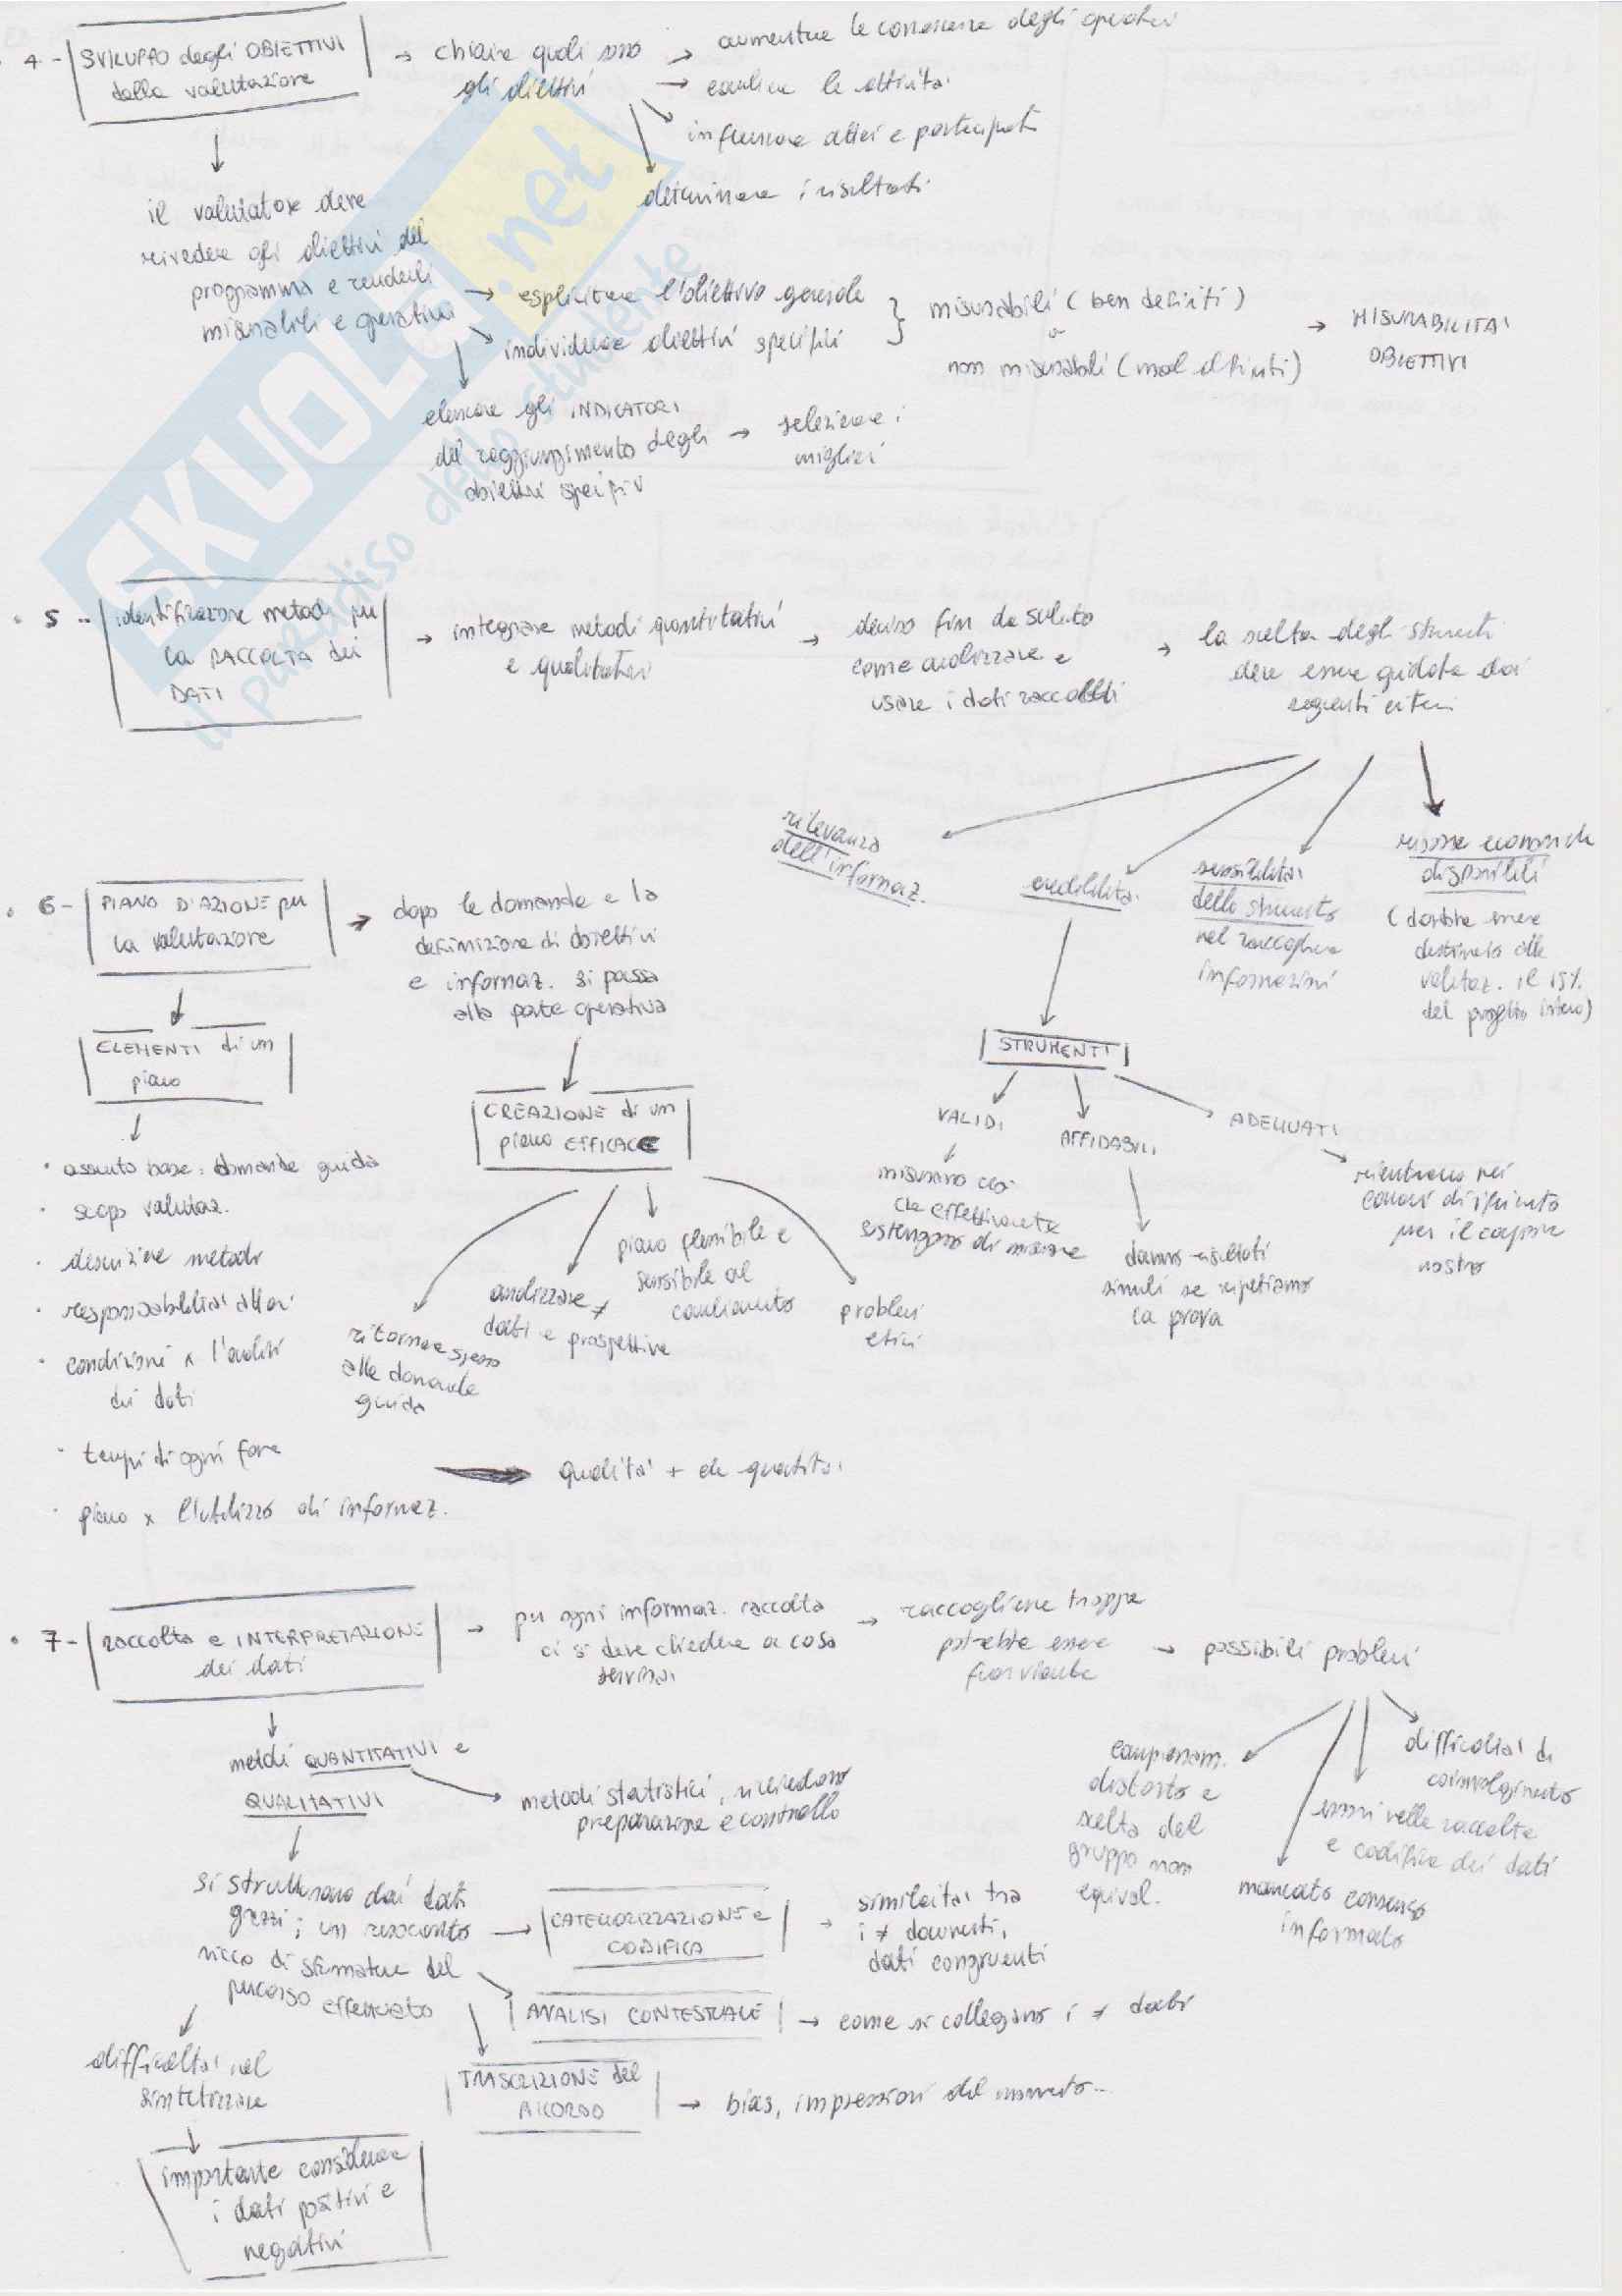 4 - SVILUPPO degli OBIETTIVI
della valutazione
→ chiare quali sono
gli obiettivi
→ aumentare le conoscenze degli operatori
→ le attività
influenzare attori e partecipanti
determinare i risultati
il valutatore deve
rivedere gli obiettivi del
programma e renderli
misurabili e operativi
→ esplicitare l'obiettivo generale
individuare obiettivi specifici
} misurabili (ben definiti)
o
non misurabili (mal definiti)
→ MISURABILITA'
OBIETTIVI
elencare gli INDICATORI
del raggiungimento degli
obiettivi specifici
→ selezionare i
migliori
SKUOLA.net
il paradiso dello studente
5 - identificazione metodi per
la RACCOLTA dei
DATI
→ integrare metodi quantitativi
e qualitativi
→ deciso fin da subito
come analizzare e
usare i dati raccolti
→ la scelta degli strumenti
deve essere guidata dai
seguenti criteri
rilevanza
dell'informaz.
credibilita'
sensibilita'
dello strumento
nel raccogliere
informazioni
risorse economiche
disponibili
(dovrebbe essere
destinato alla
valutaz. il 15%
del progetto intero)
STRUMENTI
VALIDI
misurano cio'
che effettivamente
sostengono di misurare
AFFIDABILI
danno risultati
simili se ripetiamo
la prova
ADEGUATI
rientrano nei
canoni di riferimento
per il campione
nostro
6 - PIANO D'AZIONE per
la valutazione
→ dopo le domande e la
definizione di obiettivi
e informaz. si passa
alla parte operativa
ELEMENTI di un
piano
· assunto base: domande guida
· scopo valutaz.
· descrizione metodi
· responsabilita' attori
· condizioni x l'analisi
dei dati
· tempi di ogni fase
· piano x l'utilizzo di informaz.
CREAZIONE di un
piano EFFICACE
ritornare spesso
alle domande
guida
analizzare ≠
dati e prospettive
piano flessibile e
sensibile al
cambiamento
problemi
etici
→ qualita' + che quantita'
7 - RACCOLTA e INTERPRETAZIONE
dei dati
→ per ogni informaz. raccolta
ci si deve chiedere a cosa
servira'
→ raccogliere troppe
potrebbe essere
fuorviante
→ possibili problemi
campionam.
distorto e
scelta del
gruppo non
equival.
mancato consenso
informato
errori nella raccolta
e codifica dei dati
difficolta' di
coinvolgimento
metodi QUANTITATIVI e
QUALITATIVI
metodi statistici, richiedono
preparazione e controllo
si strutturano dai dati
grezzi; un resoconto
ricco di sfumature del
percorso effettuato
→ CATEGORIZZAZIONE e
CODIFICA
→ similarita' tra
i ≠ documenti,
dati congruenti
ANALISI CONTESTUALE → come si collegano i ≠ dati
TRASCRIZIONE del
RICORDO
→ bias, impressioni del momento...
difficolta' nel
sintetizzare
importante considerare
i dati positivi e
negativi